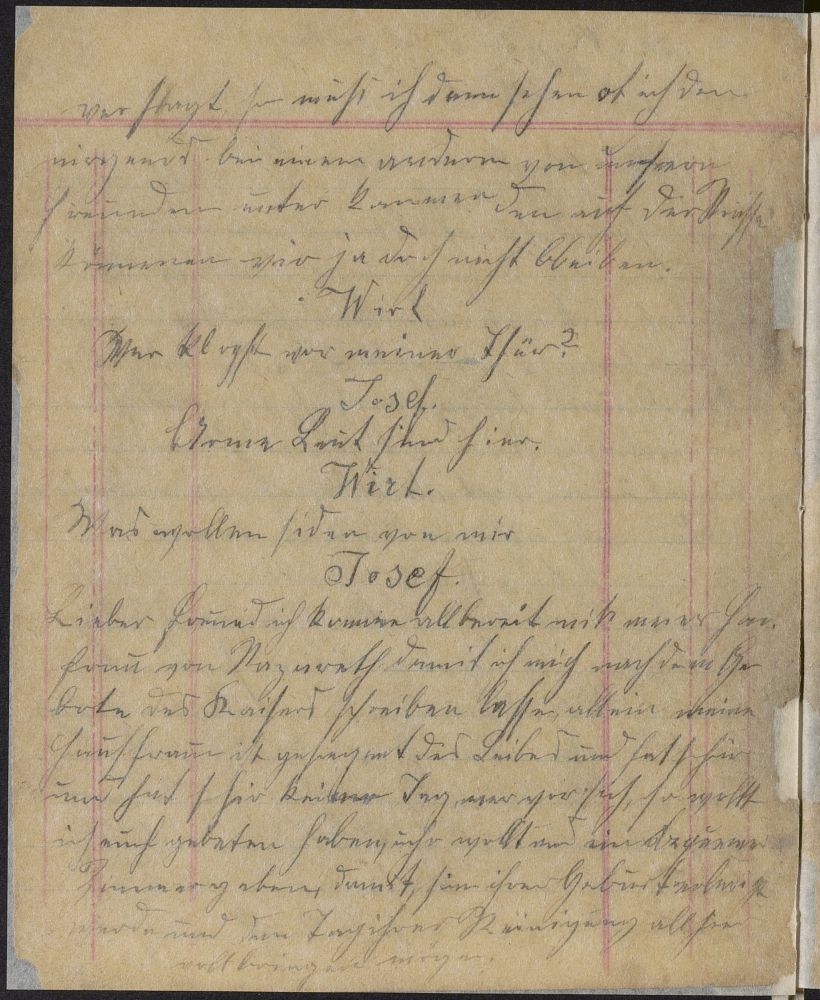 versagt, so muß ich dann sehen ob ich den
nirgends bei einem andern von unsern
Freunden unter kommen den auf der Straße
könnenen wir ja doch nicht bleiben.
Wirt
Wer klopft vor meiner Thür?
Josef.
Arme Leut sind hier.
Wirt.
Was wollen sie den von mir
Josef.
Lieber Freund ich komme allbereit mit meiner Hau.
frau von Nazareth damit ich mich nach dem Ge
bote des Kaisers schreiben lasse, allein meine
Hausfrau ist gesegnet des Leibes und hat schir
und hat schir keinen Tag mer vor sich, so wollt
ich euch gebeten haben, ihr wollt uns ein bequemes
Zimmer geben, damit sie ihrer Geburt erledigt
werde und den Tag ihrer Reinigung allhier
vollbringen möge.